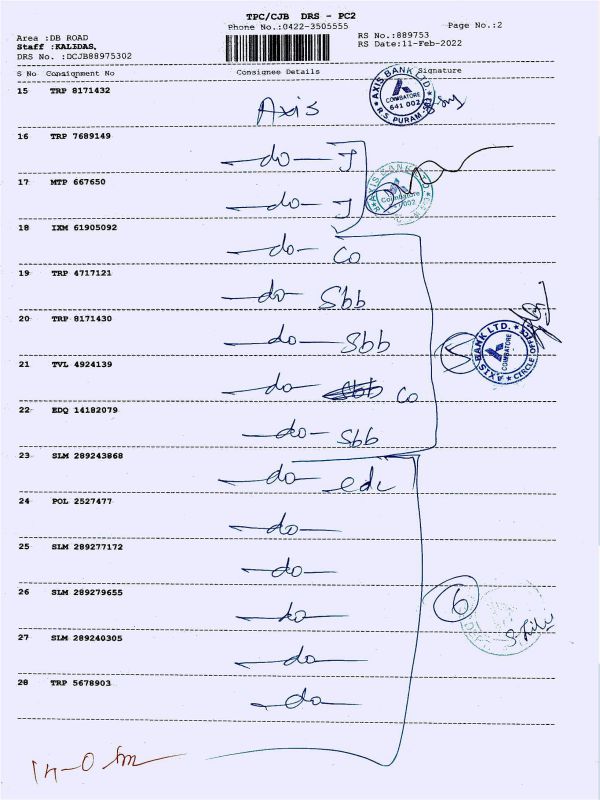 TPC/CJB DRS - PC2
Phone No.:0422-3505555
Page No.:2
Area :DB ROAD
Staff :KALIDAS,
DRS No. :DCJB88975302
RS No.:889753
RS Date:11-Feb-2022
S No Consignment No Consignee Details Signature
15 TRP 8171432
Axis
AXIS BANK LTD. COIMBATORE 641 002 R.S. PURAM
16 TRP 7689149
-do- J
17 MTP 667650
-do- J
AXIS BANK LTD Coimbatore
18 IXM 61905092
-do- Co
19 TRP 4717121
-do- Sbb
20 TRP 8171430
-do- Sbb
5
AXIS BANK LTD. COIMBATORE CIRCLE OFFICE
21 TVL 4924139
-do- Co
22 EDQ 14182079
-do- Sbb
23 SLM 289243868
-do- edc
24 POL 2527477
-do-
25 SLM 289277172
-do-
26 SLM 289279655
-do-
6
27 SLM 289240305
-do-
28 TRP 5678903
-do-